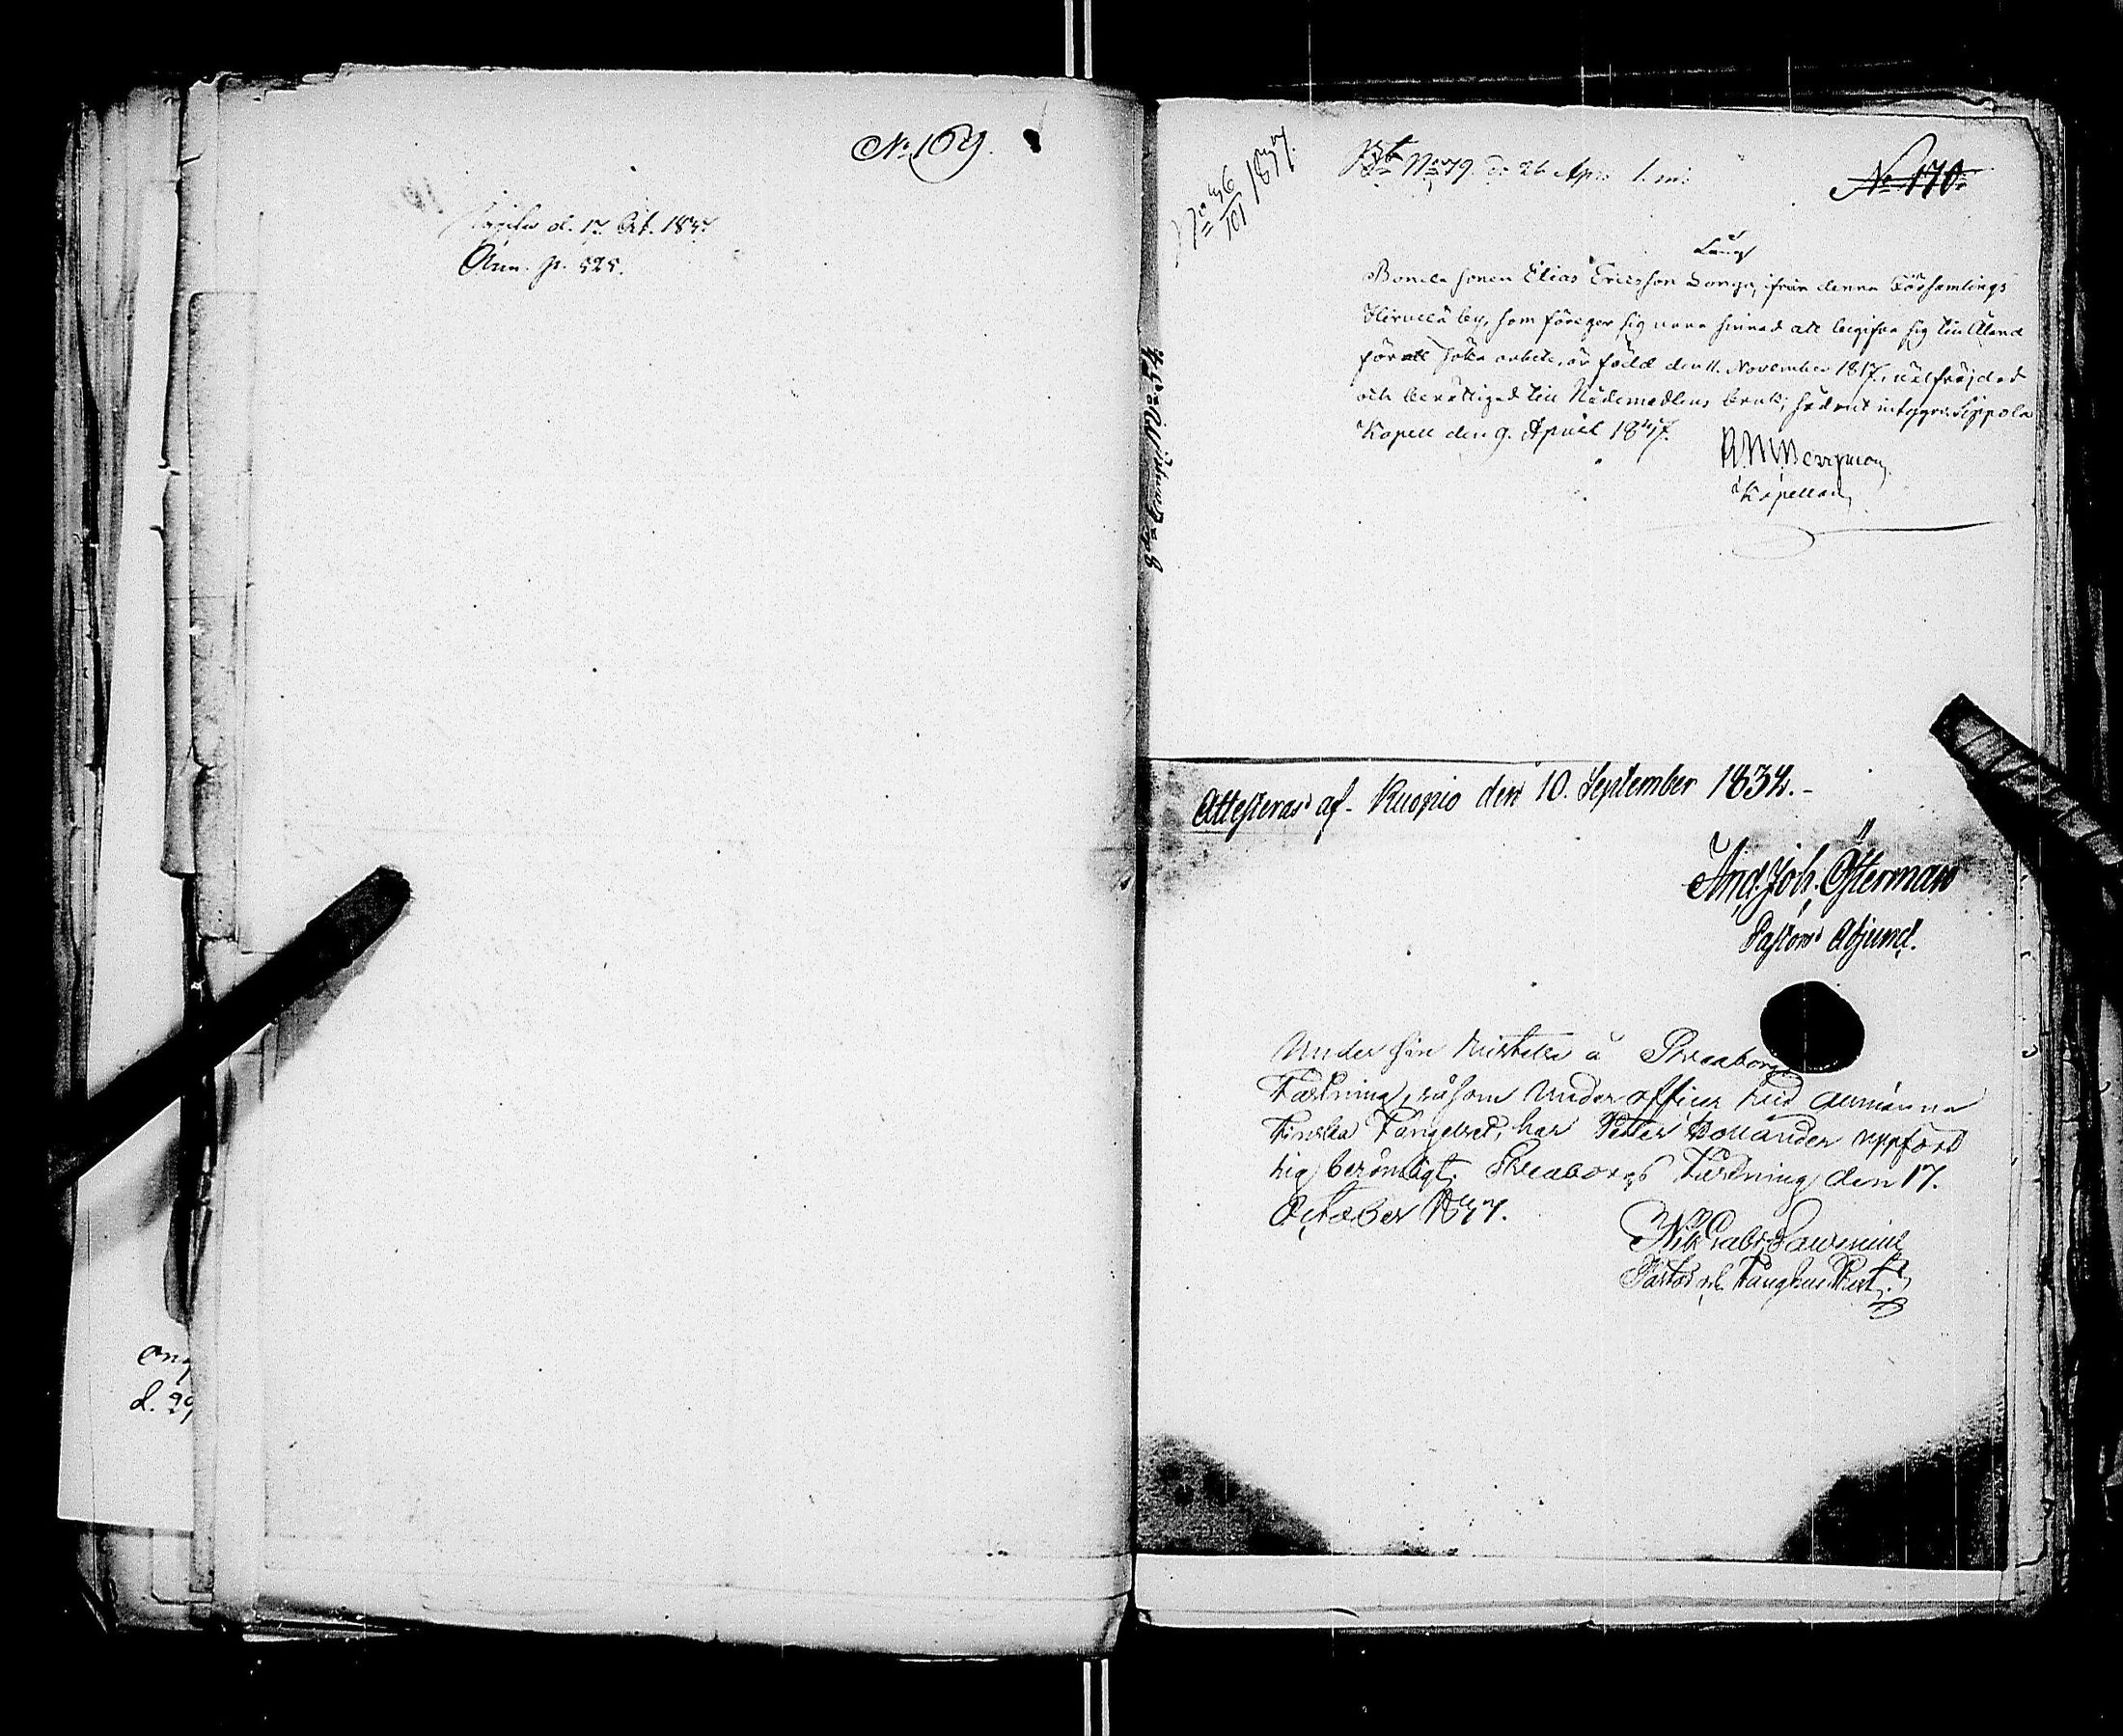 No 169.
d. 17. Oct. 1847
Ann. p. 525.
No 56/101 1847.
No 79. d. 26 Apr. l. m.
No 170.
Lang
Bonde sonen Elias Ericsson Longe, ifrån denna Församlings
Hirvelä by, som säger sig vara sinnad att begifva sig till Åland
för att söka arbete, är född den 11. November 1817, välfräjdad
och berättigad till Nådemedlens bruk; hvarmed intygar. Sippola
Kapell den 9. April 1847.
Bergman
Kapellan
Attesteras af Kuopio den 10. September 1834.
And. Joh. Österman
Pastors Adjunct.
Under sin vistelse å Sveaborgs
Fästning, såsom Under officer vid allmänna
Finska Fängelset, har Petter Bollander uppfört
sig berömligt. Sveaborgs Fästning den 17.
October 1847.
Nik. Gabr.
Pastor vid
d. 29